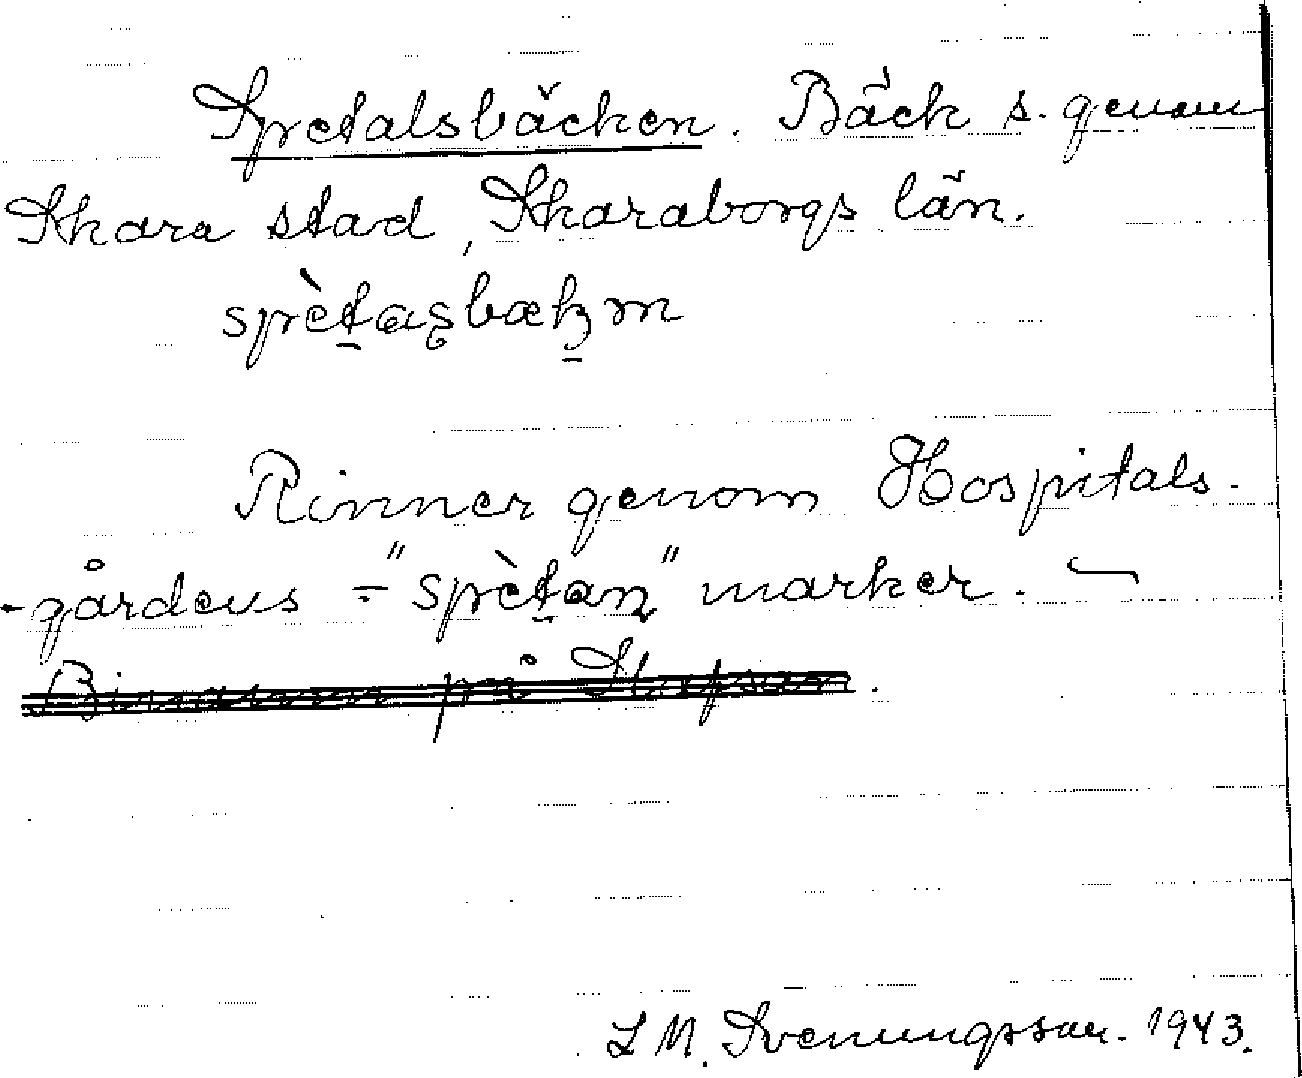 Spretalsbäcken. Bäck s. genom
Skara stad, Skaraborgs län.
sprètasbækm
Rinner genom Hospitals-
-gårdens = "sprètan" marker. —
Binamn på
L M. Svenungsson. 1943.